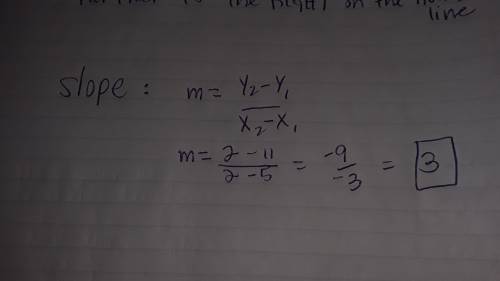 to the right on the
line
slope : m = Y₂-Y₁
X₂-X₁
m= 2-11 = -9 = 3
2-5 -3